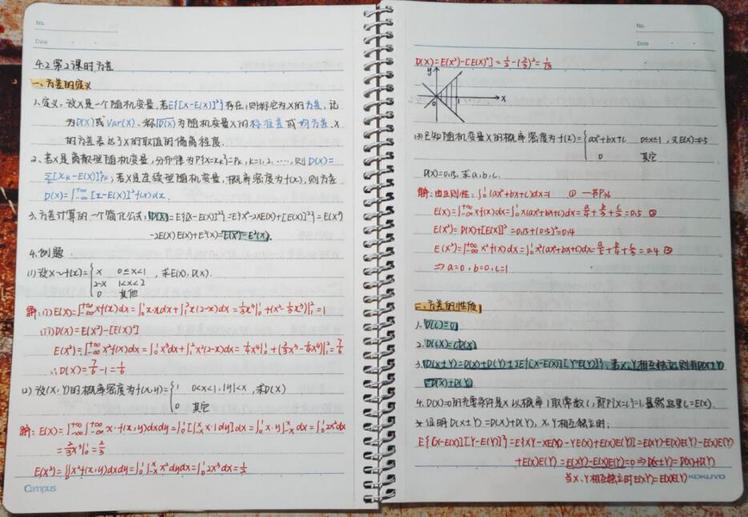 No.
Date
4.2 第2课时 方差
一、方差的定义
1、定义:设X是一个随机变量,若E{[X-E(X)]²}存在,则称它为X的方差,记
为D(X)或Var(X),称√D(X)为随机变量X的标准差或均方差,X
的方差表达了X的取值的偏离程度.
2、若X是离散型随机变量,分布律为P{X=xₖ}=pₖ, k=1,2,…,则D(X)=
Σ[xₖ-E(X)]²pₖ;若X是连续型随机变量,概率密度为f(x),则方差
D(X)=∫₋∞⁺∞[x-E(X)]²f(x)dx.
3、方差计算的一个简化公式:D(X)=E{[X-E(X)]²}=E{X²-2XE(X)+[E(X)]²}=E(X²)
-2E(X)E(X)+E²(X)=E(X²)-E²(X).
4、例题
(1)设X~f(x)={x 0≤x<1 ,求E(X),D(X).
2-x 1<x<2
0 其他
解:(1)E(X)=∫₋∞⁺∞xf(x)dx=∫₀¹x·xdx+∫₁²x(2-x)dx=⅓x³|₀¹+(x²-⅓x³)|₁²=1
(2)D(X)=E(X²)-[E(X)]²
E(X²)=∫₋∞⁺∞x²f(x)dx=∫₀¹x³dx+∫₁²x²(2-x)dx=¼x⁴|₀¹+(⅔x³-¼x⁴)|₁²=7/6
∴D(X)=7/6-1=1/6
(2)设(X,Y)的概率密度为f(x,y)={1 0<x<1,|y|<x ,求D(X)
0 其它
解:E(X)=∫₋∞⁺∞∫₋∞⁺∞x·f(x,y)dxdy=∫₀¹[∫₋ₓˣx·1dy]dx=∫₀¹x·y|₋ₓˣdx=∫₀¹2x²dx
=⅔x³|₀¹=⅔
E(X²)=∬x²f(x,y)dxdy=∫₀¹∫₋ₓˣx²dydx=∫₀¹2x³dx=½
Campus
No.
Date
D(X)=E(X²)-[E(X)²]=½-(⅔)²=1/18
y
x
0
1
(3)已知随机变量X的概率密度为f(x)={ax²+bx+c 0≤x≤1 ,又E(X)=0.5
0 其它
D(X)=0.15,求a,b,c.
解:由正则性:∫₀¹(ax²+bx+c)dx=1 ①
E(X)=∫₋∞⁺∞xf(x)dx=∫₀¹x(ax²+bx+c)dx=a/4+b/3+c/2=0.5 ②
E(X²)=D(X)+[E(X)]²=0.15+(0.5)²=0.4
E(X²)=∫₋∞⁺∞x²f(x)dx=∫₀¹x²(ax²+bx+c)dx=a/5+b/4+c/3=0.4 ③
⇒a=0,b=0,c=1
二、方差的性质
1、D(c)=0
2、D(cX)=c²D(X)
3、D(X±Y)=D(X)+D(Y)±2E{[X-E(X)][Y-E(Y)]},若X,Y相互独立,则有D(X±Y)
=D(X)+D(Y)
4、D(X)=0的充要条件是X以概率1取常数c,即P{X=c}=1.显然这里c=E(X).
※证明D(X±Y)=D(X)+D(Y),X,Y相互独立时:
E{[X-E(X)][Y-E(Y)]}=E{XY-XE(Y)-YE(X)+E(X)E(Y)}=E(XY)-E(X)E(Y)-E(X)E(Y)
+E(X)E(Y)=E(XY)-E(X)E(Y)=0⇒D(X±Y)=D(X)+D(Y)
当X,Y相互独立时E(XY)=E(X)E(Y)
KOKUYO